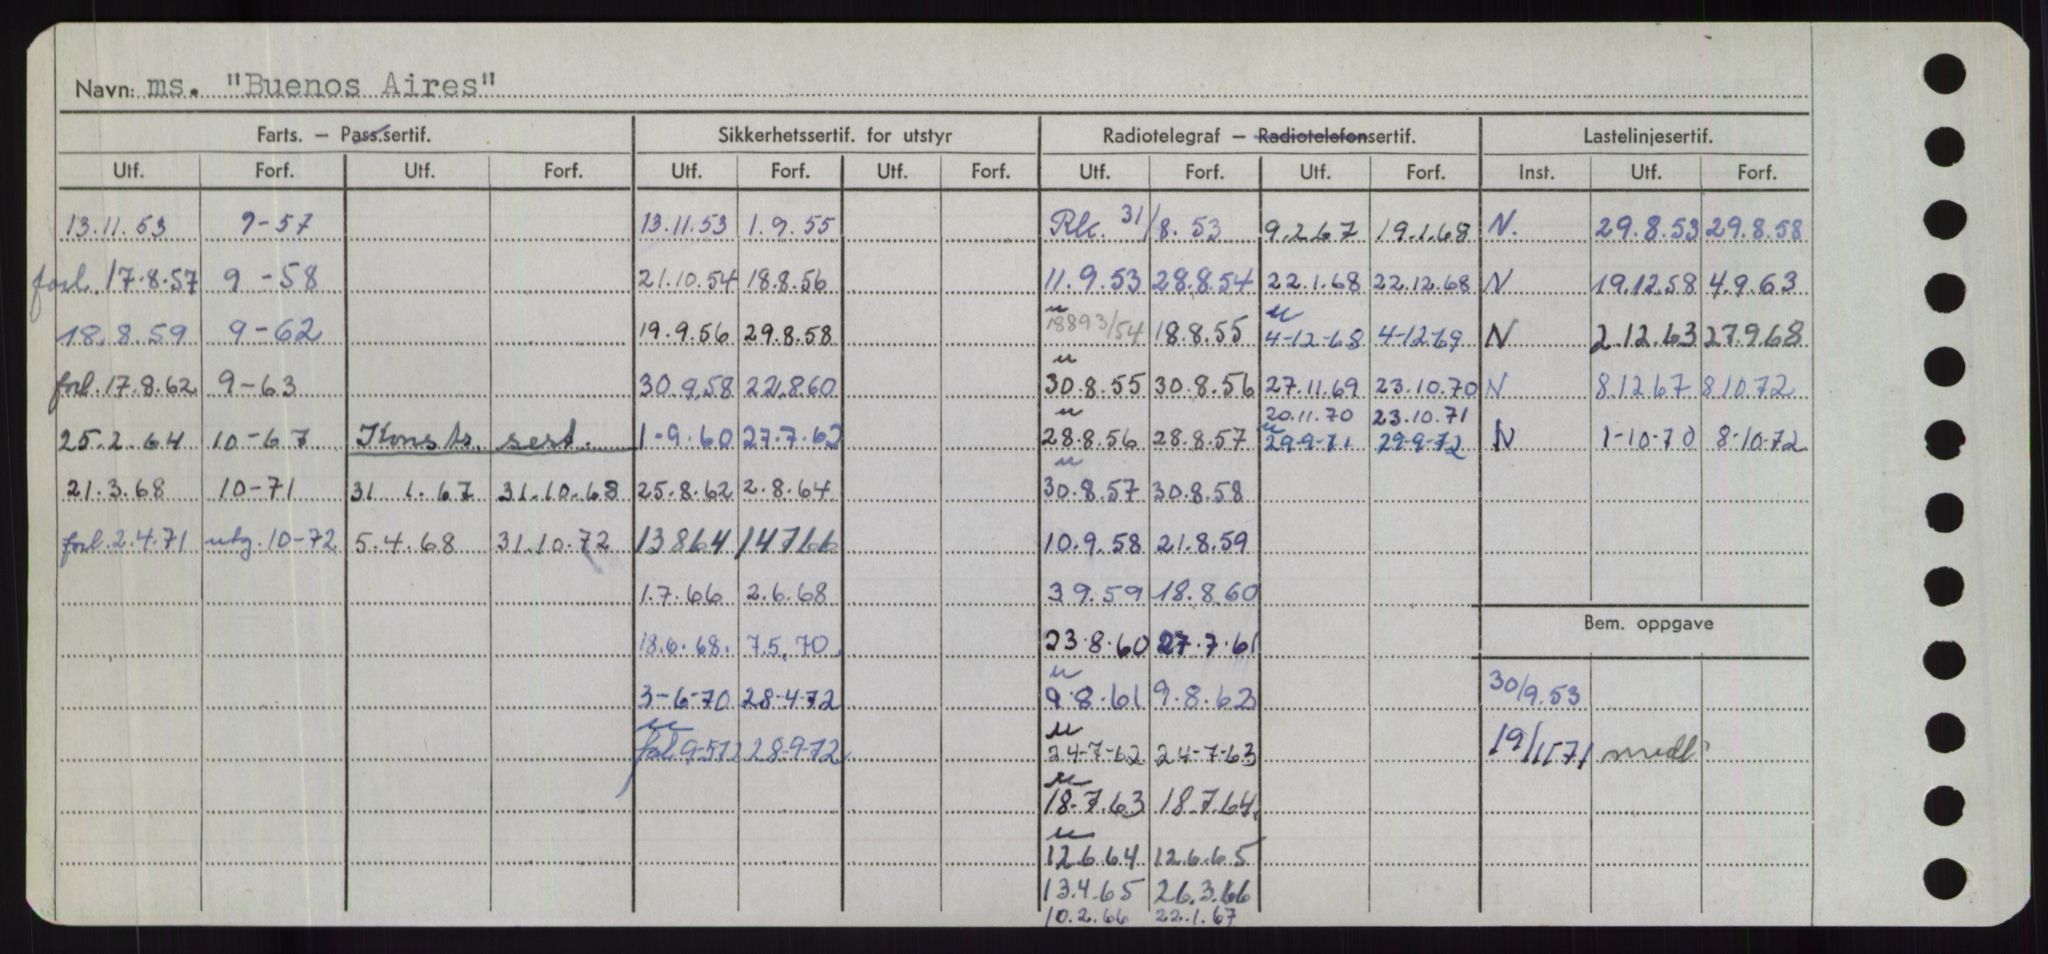 Navn: ms. "Buenos Aires"
Farts. — Pass.sertif. Sikkerhetssertif. for utstyr Radiotelegraf — Radiotelefonsertif. Lastelinjesertif.
Utf. Forf. Utf. Forf. Utf. Forf. Utf. Forf. Utf. Forf. Utf. Forf. Inst. Utf. Forf.
13.11.53 9-57 13.11.53 1.9.55 Rlc. 31/8.53 9.2.67 19.1.68 N. 29.8.53 29.8.58
forl. 17.8.57 9-58 21.10.54 18.8.56 11.9.53 28.8.54 22.1.68 22.12.68 N 19.12.58 4.9.63
18.8.59 9-62 19.9.56 29.8.58 18893/54 18.8.55 4-12-68 4-12-69 N 2.12.63 27.9.68
forl. 17.8.62 9-63 30.9.58 22.8.60 30.8.55 30.8.56 27.11.69 23.10.70 N 8.12.67 8.10.72
20.11.70 23.10.71
25.2.64 10-67 Konstr. sert. 1-9.60 27.7.62 28.8.56 28.8.57 29-9-71 29-9-72 N 1-10-70 8-10-72
21.3.68 10-71 31.1.67 31.10.68 25.8.62 2.8.64 30.8.57 30.8.58
forl. 2.4.71 utg. 10-72 5.4.68 31.10.72 13864 14766 10.9.58 21.8.59
1.7.66 2.6.68 3.9.59 18.8.60
Bem. oppgave
18.6.68. 7.5.70. 23.8.60 27.7.61
3-6-70 28-4-72 9.8.61 9.8.62 30/9.53
forl 9-572 28-9-72 24-7-62 24-7-63 19/11 71 medl.
18.7.63 18.7.64
12.6.64 12.6.65
13.4.65 26.3.66
10.2.66 22.1.67